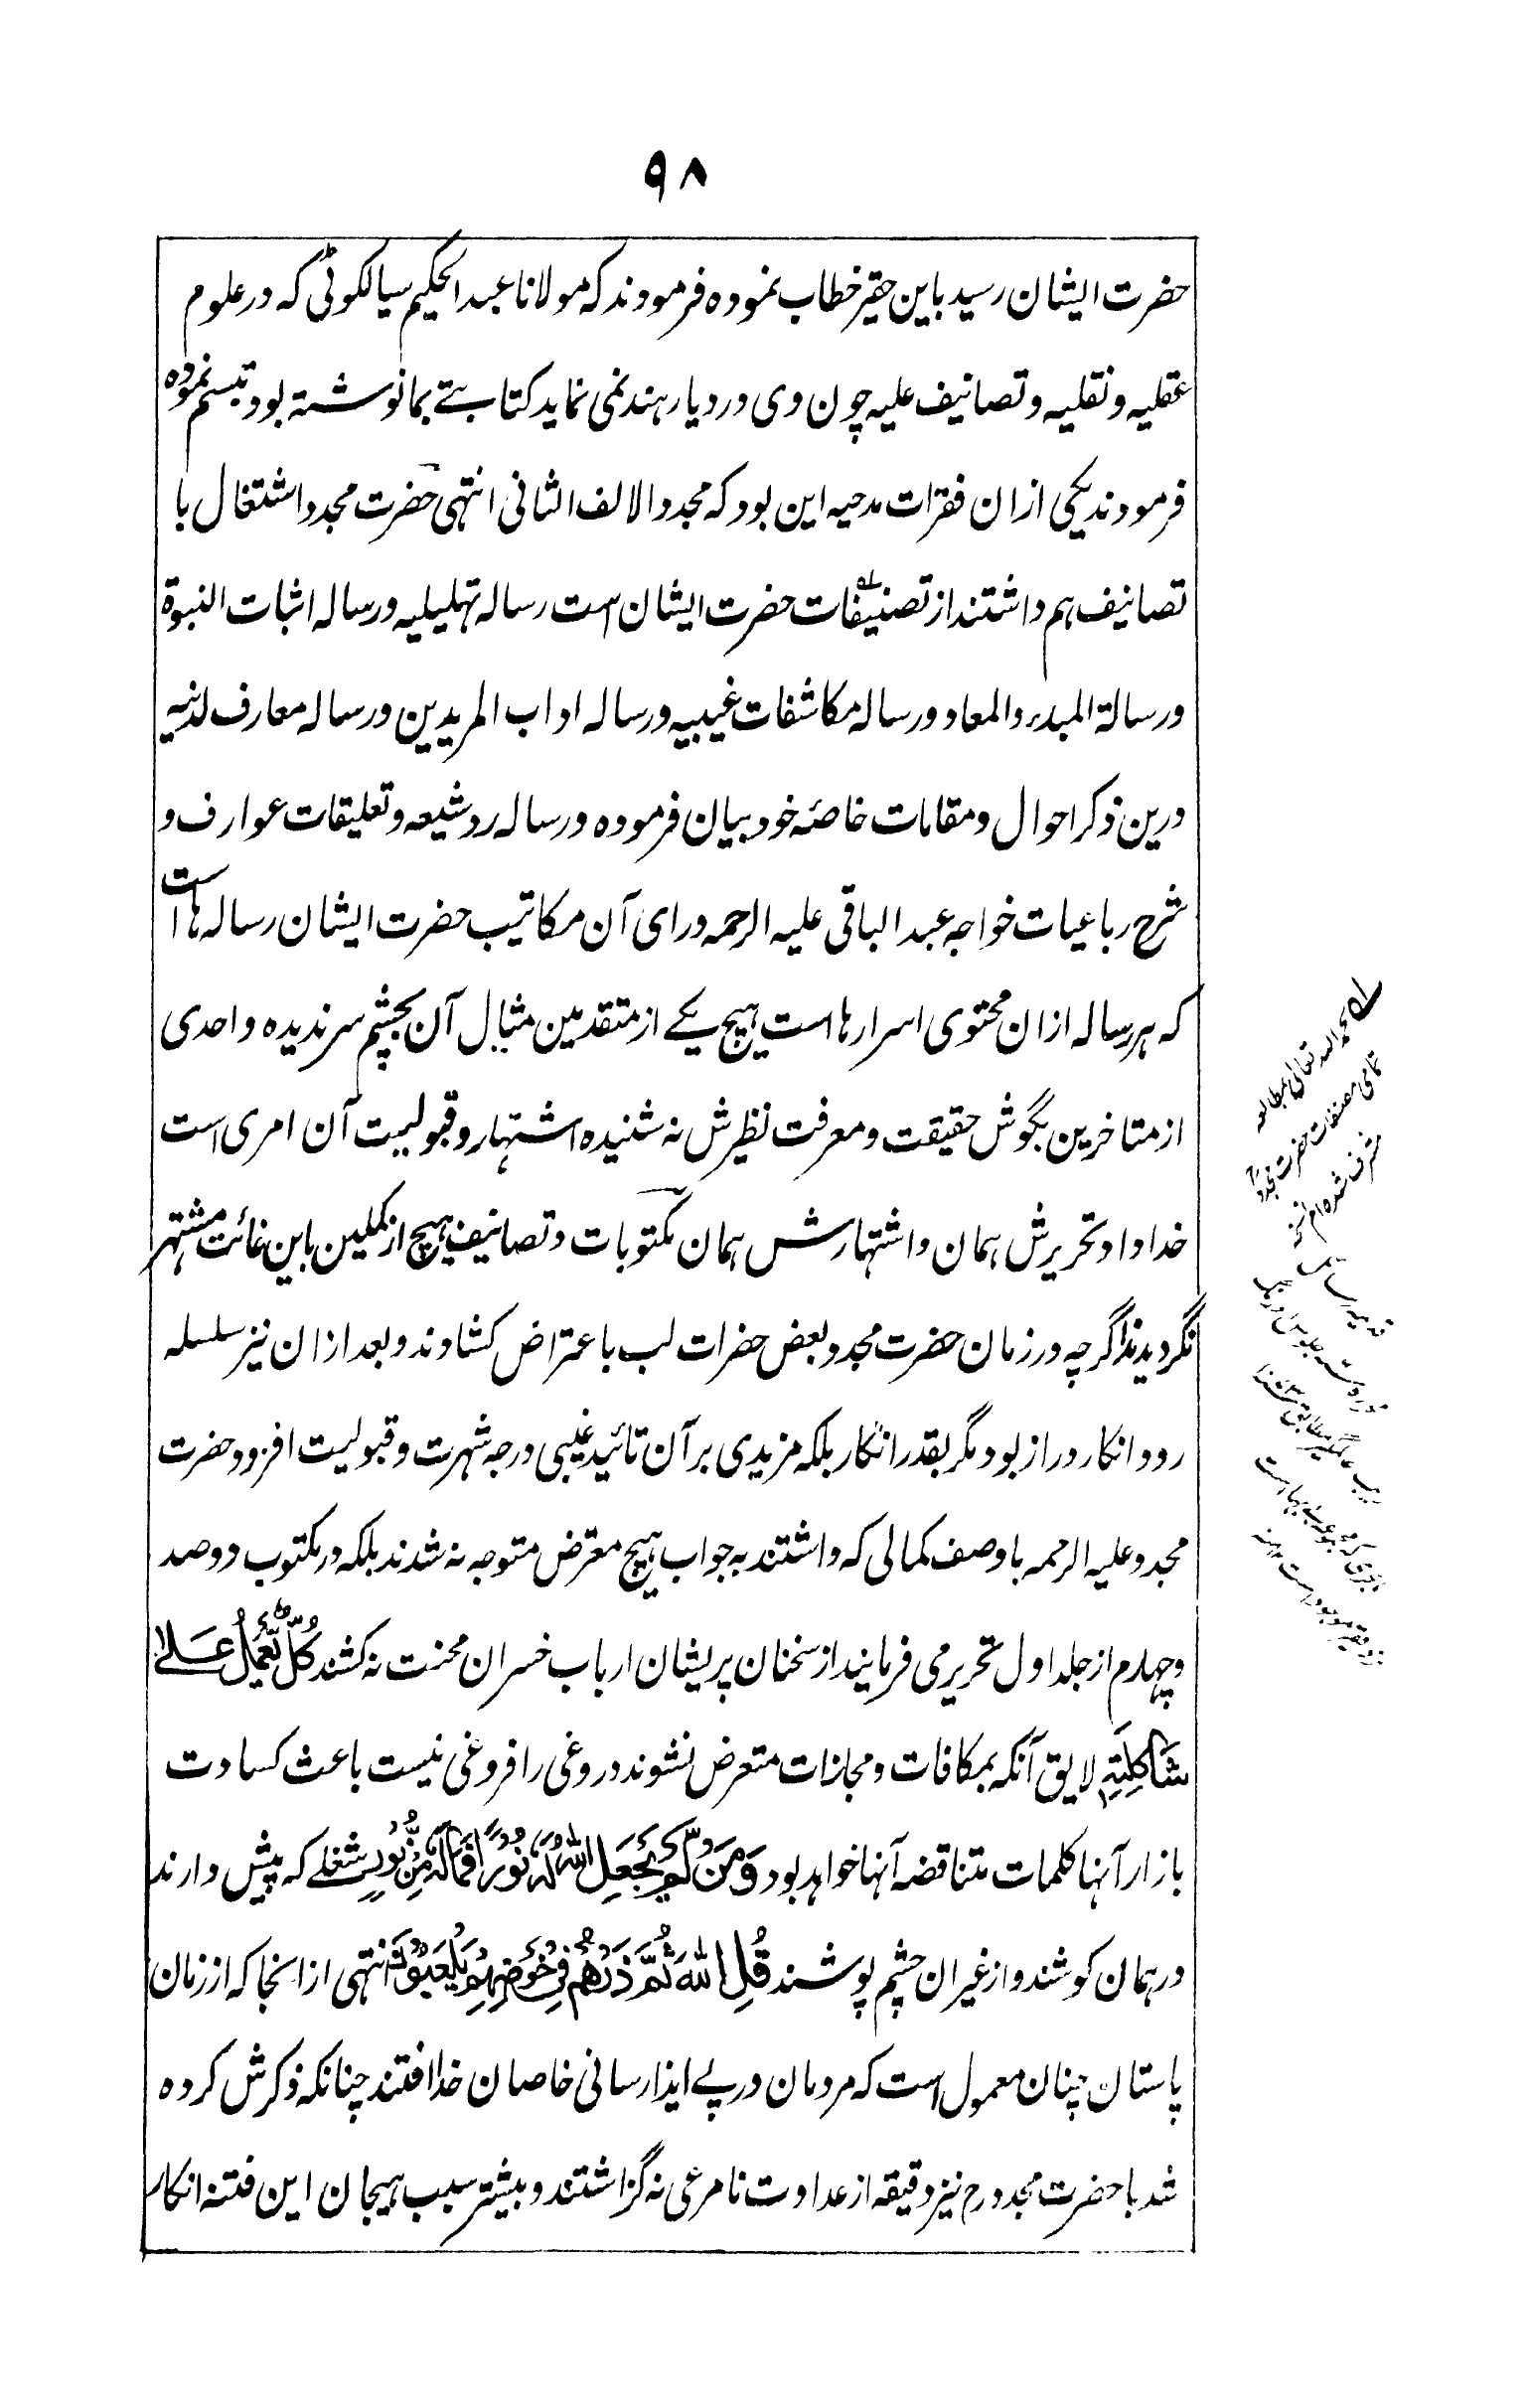 ۹۸
حضرت ایشان رسید باین حقیر خطاب نموده فرمودند که مولانا عبدالحکیم سیالکوٹی که در علوم
عقلیه و نقلیه و تصانیف علیه چون وی در دیار هند نمی نماید کتابتے بما نوشته بود تبسم نموده
فرمودند یکی ازان فقرات مدحیه این بود که مجدد الالف الثانی انتهی حضرت مجدد اشتغال با
تصانیف هم داشتند از تصنیفات حضرت ایشان است رساله تهلیلیه و رساله اثبات النبوة
و رسالة المبدء والمعاد و رساله مکاشفات غیبیه و رساله اداب المریدین و رساله معارف لدنیه
درین ذکر احوال و مقامات خاصّه خود بیان فرموده و رساله رد شیعه و تعلیقات عوارف و
شرح رباعیات خواجه عبدالباقی علیه الرحمه ورای آن مکاتیب حضرت ایشان رساله ها است
که هر رساله ازان محتوی اسرارها است هیچ یکے از متقدمین مثال آن بچشم سر ندیده و احدی
از متاخرین بگوش حقیقت و معرفت نظیرش نه شنیده اشتهار و قبولیت آن امری است
خداداد و تحریرش همان و اشتهارش همان مکتوبات و تصانیف هیچ از کملین باین غائت مشتهر
نگردیدند اگرچه در زمان حضرت مجدد بعض حضرات لب باعتراض کشادند و بعد ازان نیز سلسله
رد و انکار دراز بود مگر بقدر انکار بلکه مزیدی بر آن تائید غیبی درجه شهرت و قبولیت افزود حضرت
مجدد علیه الرحمه باوصف کمالی که داشتند به جواب هیچ معترض متوجه نه شدند بلکه در مکتوب دو صد
و چهارم از جلد اول تحریر می فرمایند از سخنان پریشان ارباب خسران محنت نه کشند كُلٌّ يَّعْمَلُ عَلٰى
شَاكِلَتِهٖ لایق آنکه بمکافات و مجازات متعرض نشوند دروغی را فروغی نیست باعث کسادت
بازار آنها کلمات متناقضه آنها خواهد بود وَمَنْ لَّمْ يَجْعَلِ اللّٰهُ لَهٗ نُوْرًا فَمَا لَهٗ مِنْ نُّوْرٍ شغلے که پیش دارند
در همان کوشند و از غیر ان چشم پوشند قُلِ اللّٰهُ ثُمَّ ذَرْهُمْ فِيْ خَوْضِهِمْ يَلْعَبُوْنَ انتهی ازانجا که از زمان
پاستان چنان معمول است که مردمان درپے ایذا رسانی خاصان خدا افتند چنانکه ذکرش کرده
شد با حضرت مجدد رح نیز دقیقه از عداوت نامرعی نه گزاشتند و بیشتر سبب هیجان این فتنه انکار
له بحمد الله تعالی بمطالعه
تمامی مصنفات حضرت مجدد رح
مشرف شده ام